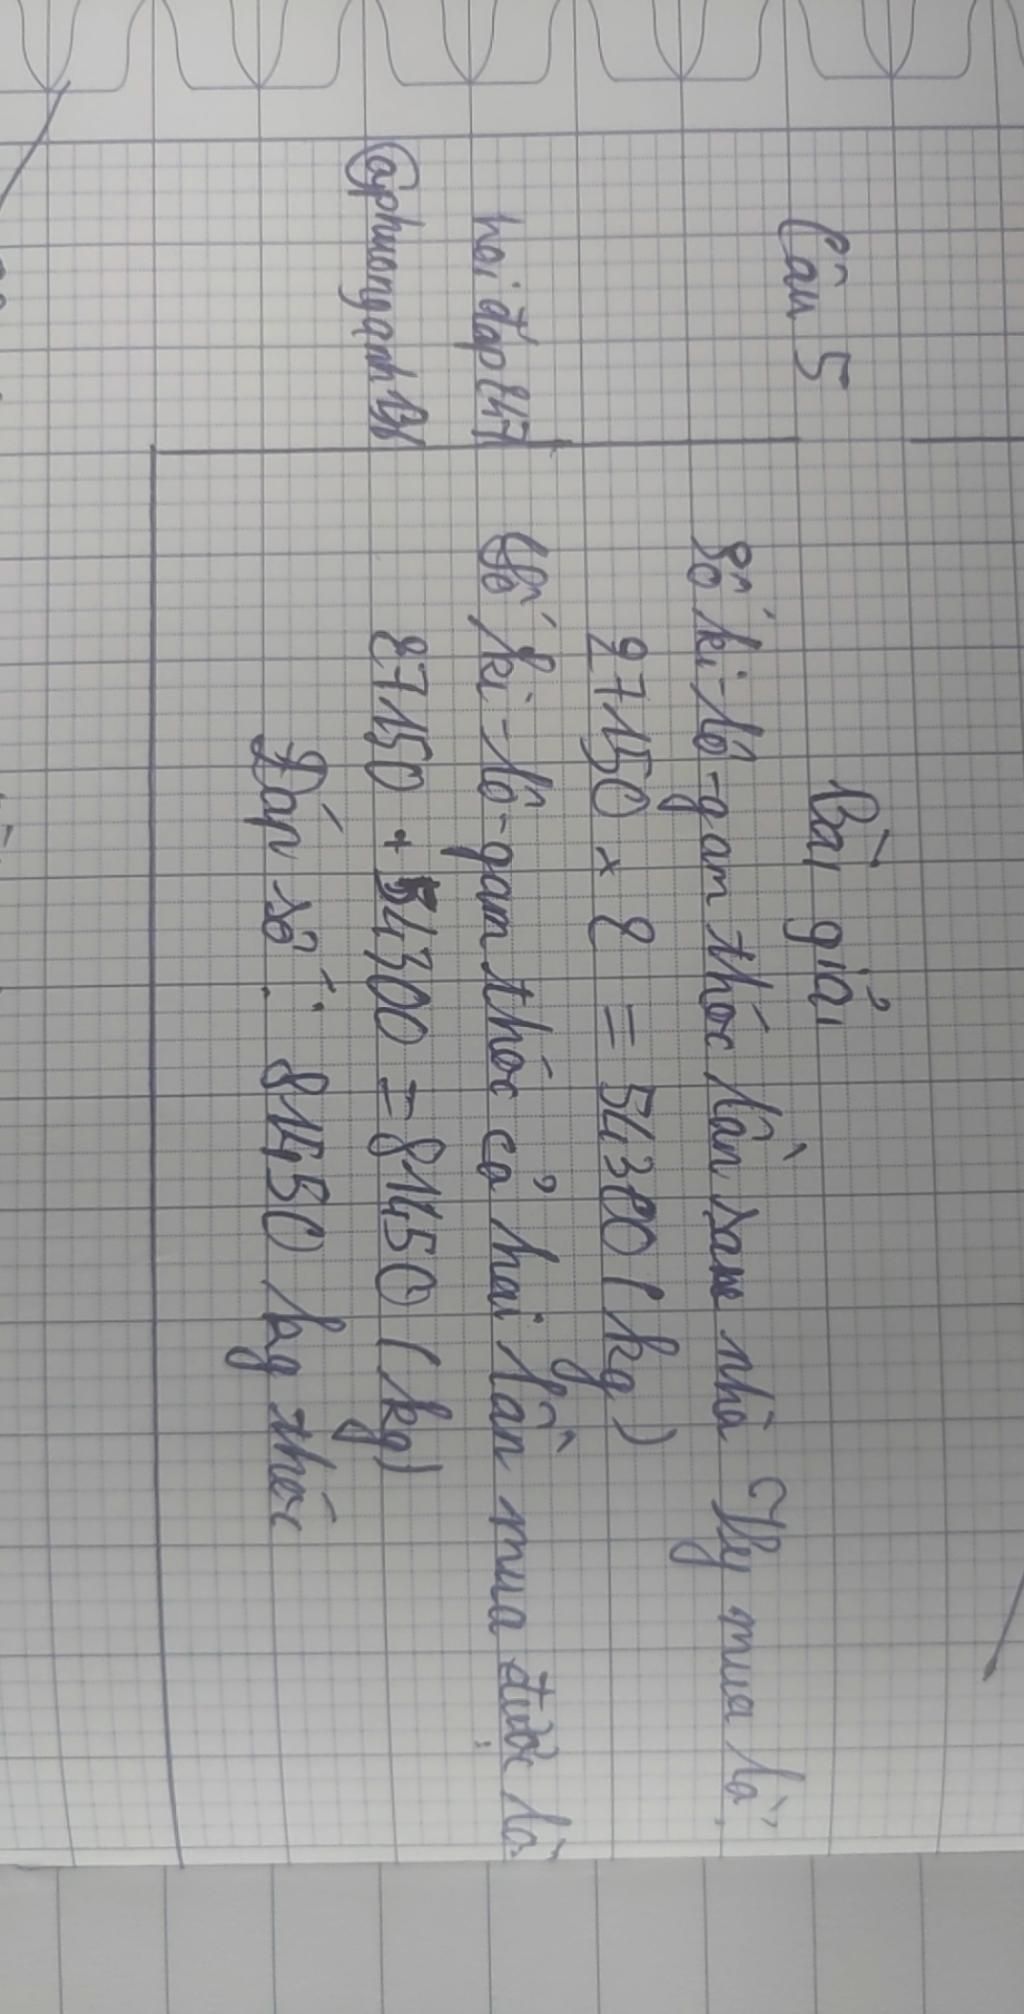 Câu 5
Bài giải
Số ki-lô-gam thóc lần sau nhà Vy mua là
27150 x 2 = 54300 (kg)
hoidap247
Số ki-lô-gam thóc cả hai lần mua được là
27150 + 54300 = 81450 (kg)
Đáp số: 81450 kg thóc